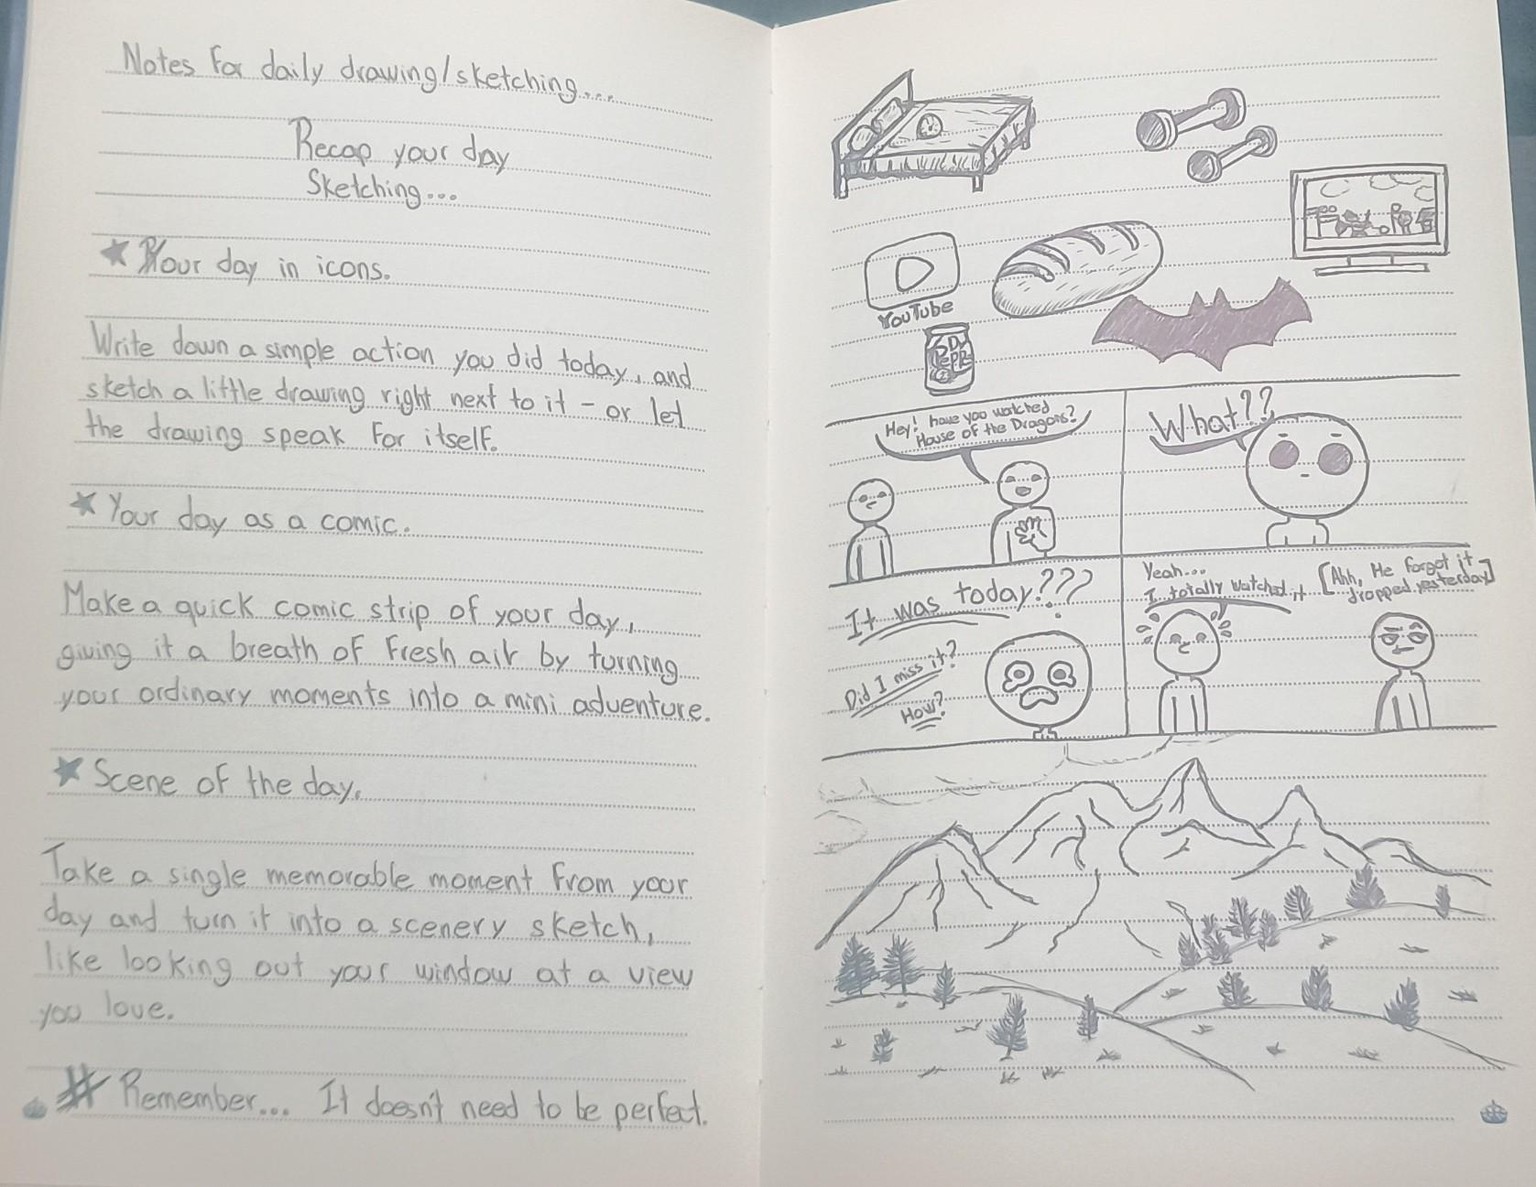 Notes for daily drawing/sketching...
Recap your day
Sketching...
Your day in icons.
Write down a simple action you did today, and
sketch a little drawing right next to it - or let
the drawing speak for itself.
Your day as a comic.
Make a quick comic strip of your day,
giving it a breath of fresh air by turning
your ordinary moments into a mini adventure.
Scene of the day.
Take a single memorable moment from your
day and turn it into a scenery sketch,
like looking out your window at a view
you love.
# Remember... It doesn't need to be perfect.
YouTube
Hey! have you watched
House of the Dragons?
What??
It was today???
Did I miss it?
How?
Yeah...
I totally watched it
[Ahh, He forgot it
dropped yesterday]